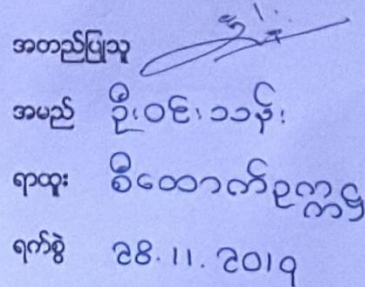 အတည်ပြုသူ
အမည် ဦးဝင်းသန်း
ရာထူး စီထောက်ဥက္ကဋ္ဌ
ရက်စွဲ ၁၄.11.၂၀1၇